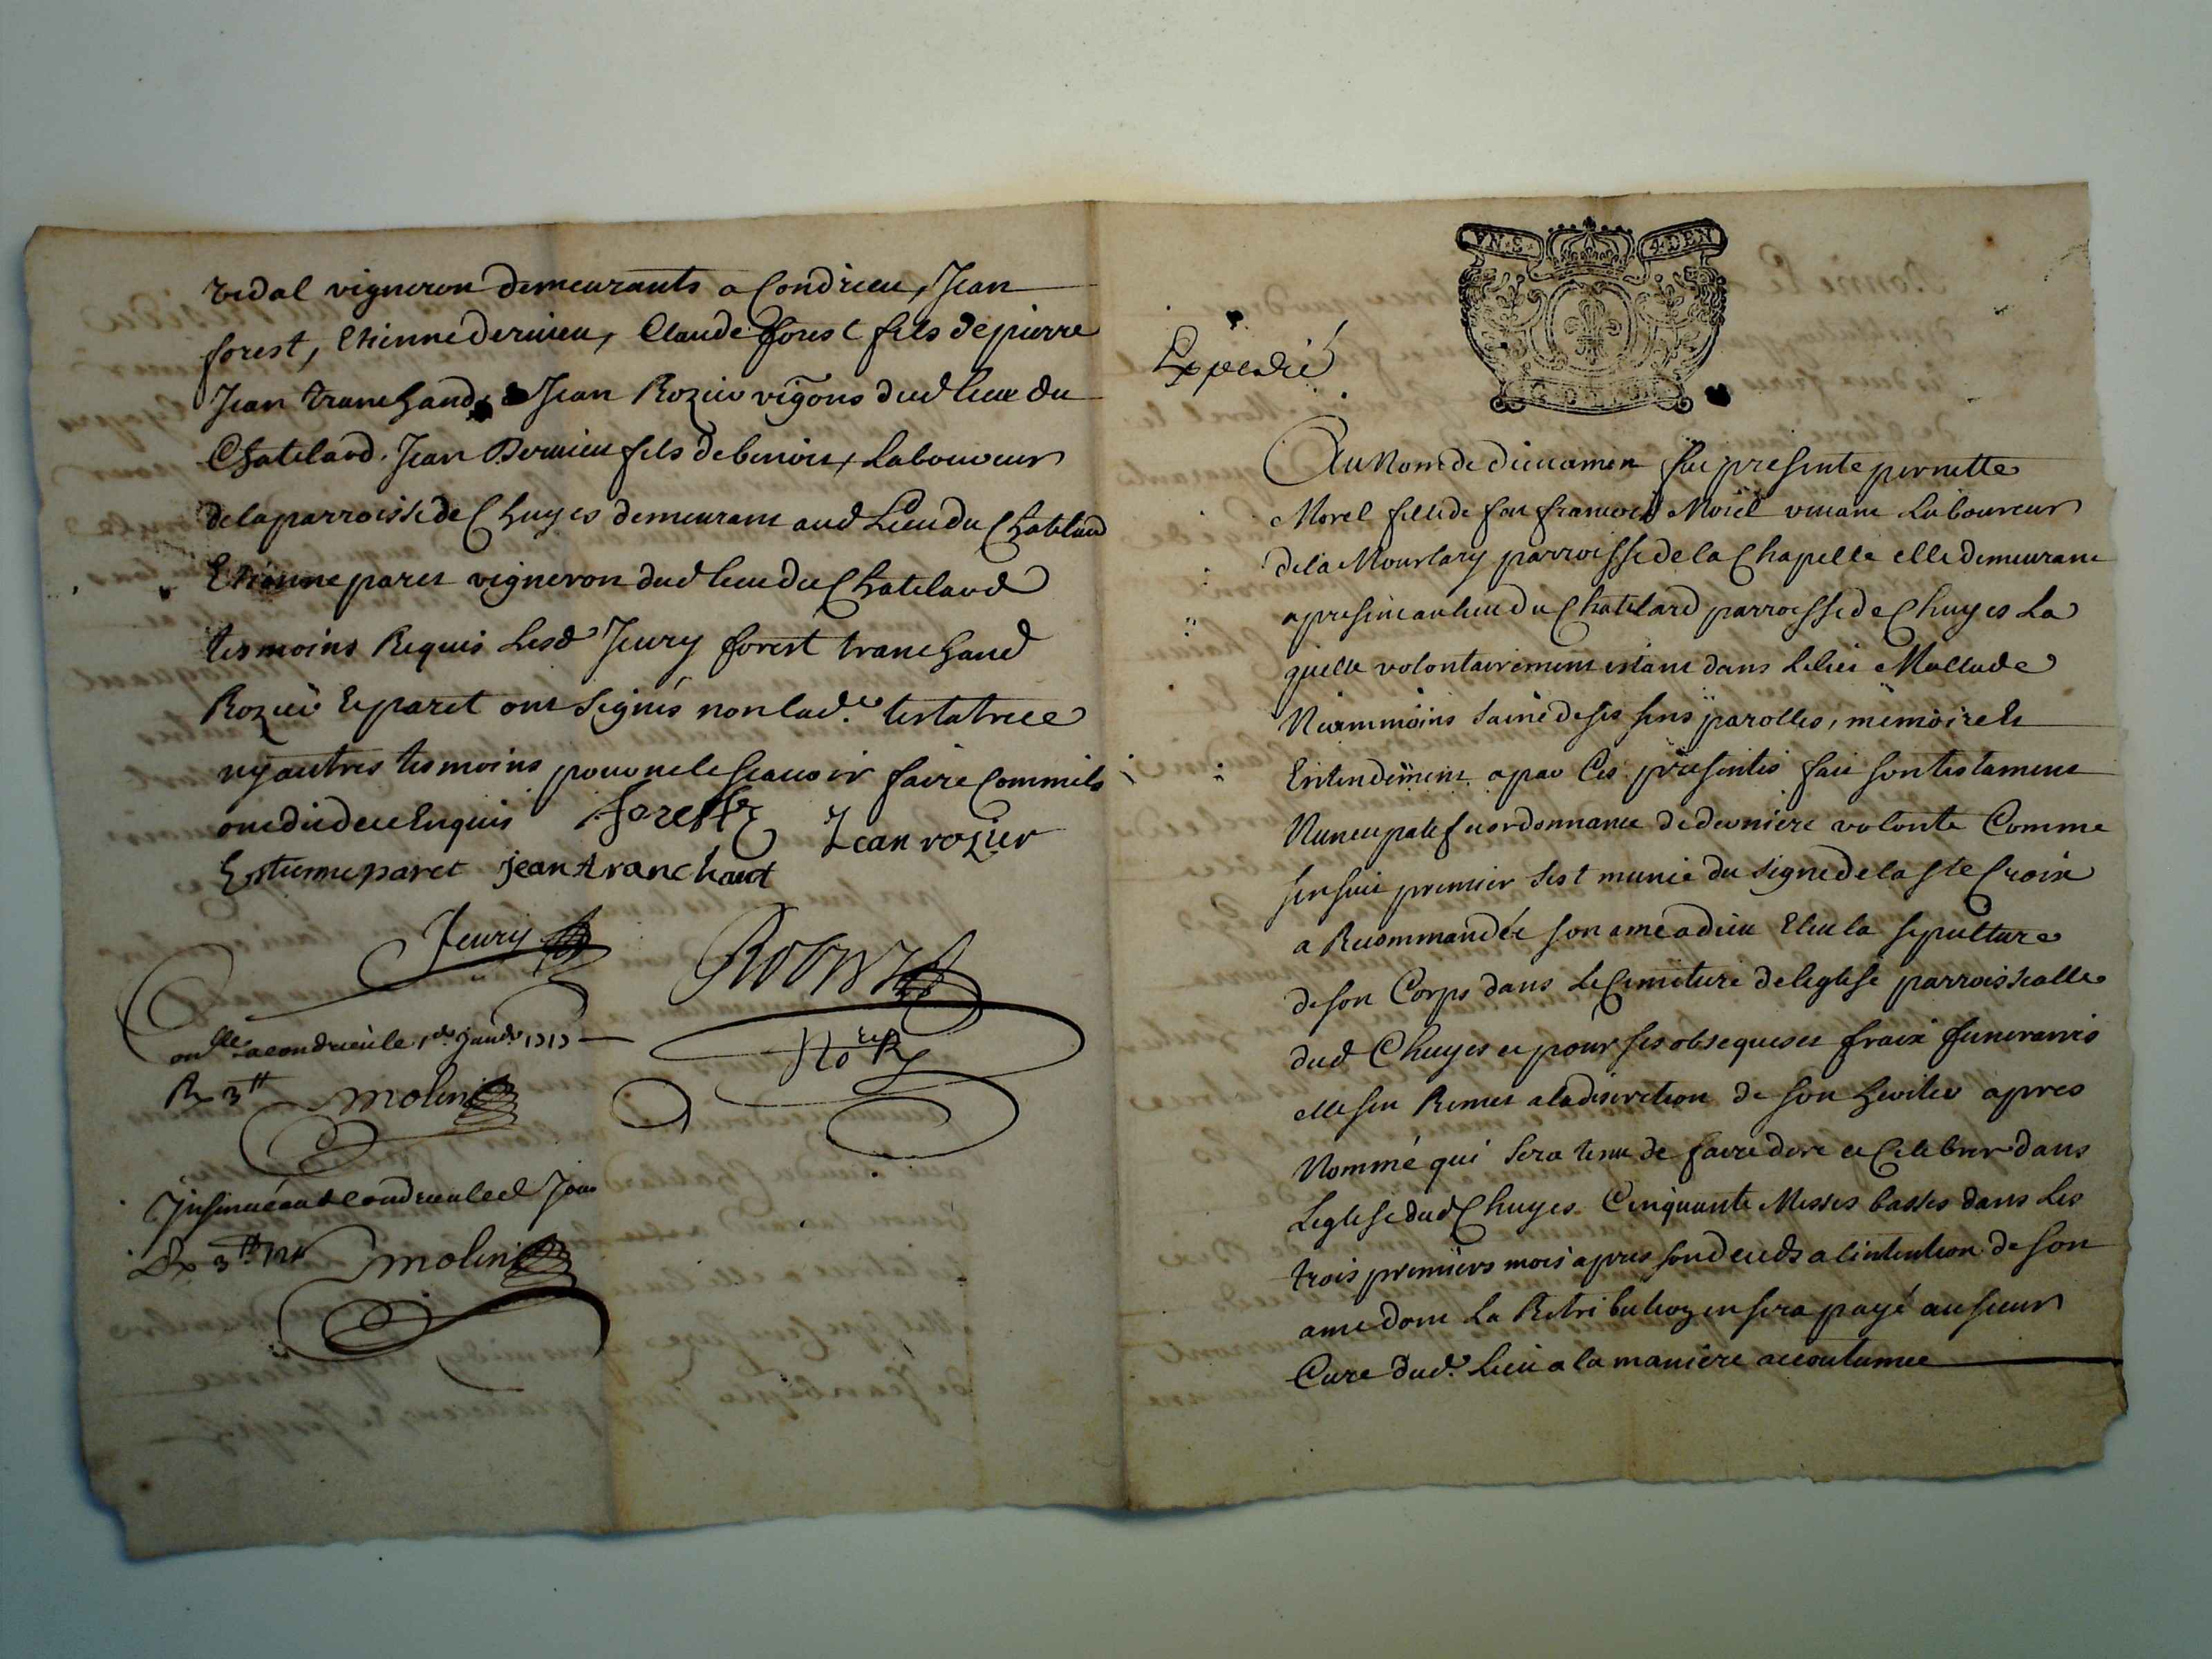 vidal vigneron demeurants a Condrieu, Jean
forest, Etienne dervieu, Claude forest fils de pierre
Jean tranchand, Jean Rozier vigons dud lieu du
Chatelard. Jean Dervieu fils de benoit, Laboureur
de la parroisse de Chuyes demeurant aud Lieu du Chatelard
Etienne paret vigneron dud lieu du Chatelard
tesmoins Requis Lesd Jeury forest tranchand
Rozier & paret ont signés non lad.e testatrice
ny autres tesmoins pour ne le scavoir faire comme ils
ont dit de ce Enquis forest Jean rozier
Estienne paret jean tranchant
Jeury
onlle a condrieu le janv. 1717
Rx 3tt molin
No.re R
Insinué aud condrieu led Jour
Rx 3tt molin
VN.S. 4.DEN
Expedié
Au Nom de dieu amen fut presente pernette
Morel fille de feu francois Morel vivant Laboureur
de la parroisse de la Chapelle elle demeurant
a present au lieu du Chatelard parroisse de Chuyes La
quelle volontairement estant dans le lict Mallade
Neammoins saine de ses sens parolles, memoire Et
Entendement a par Ces presentes fait son testament
Nuncupatif et ordonnance de derniere volonte Comme
sensuit premier sest munie du signe de la ste Croix
a Recommandée son ame a dieu Eleu la sepulture
de son Corps dans le Cimetiere de leglise parroissialle
dud Chuyes et pour ses obseques et fraix funerairis
elle sen Remet a la discretion de son heritier apres
Nommé qui sera tenu de faire dire et Celebrer dans
Leglise dud Chuyes Cinquante Messes basses dans Les
trois premiers mois apres son deceds a lintention de son
ame dont La Retribution en sera payé au sieur
Curé dud. Lieu a la maniere accoutumee